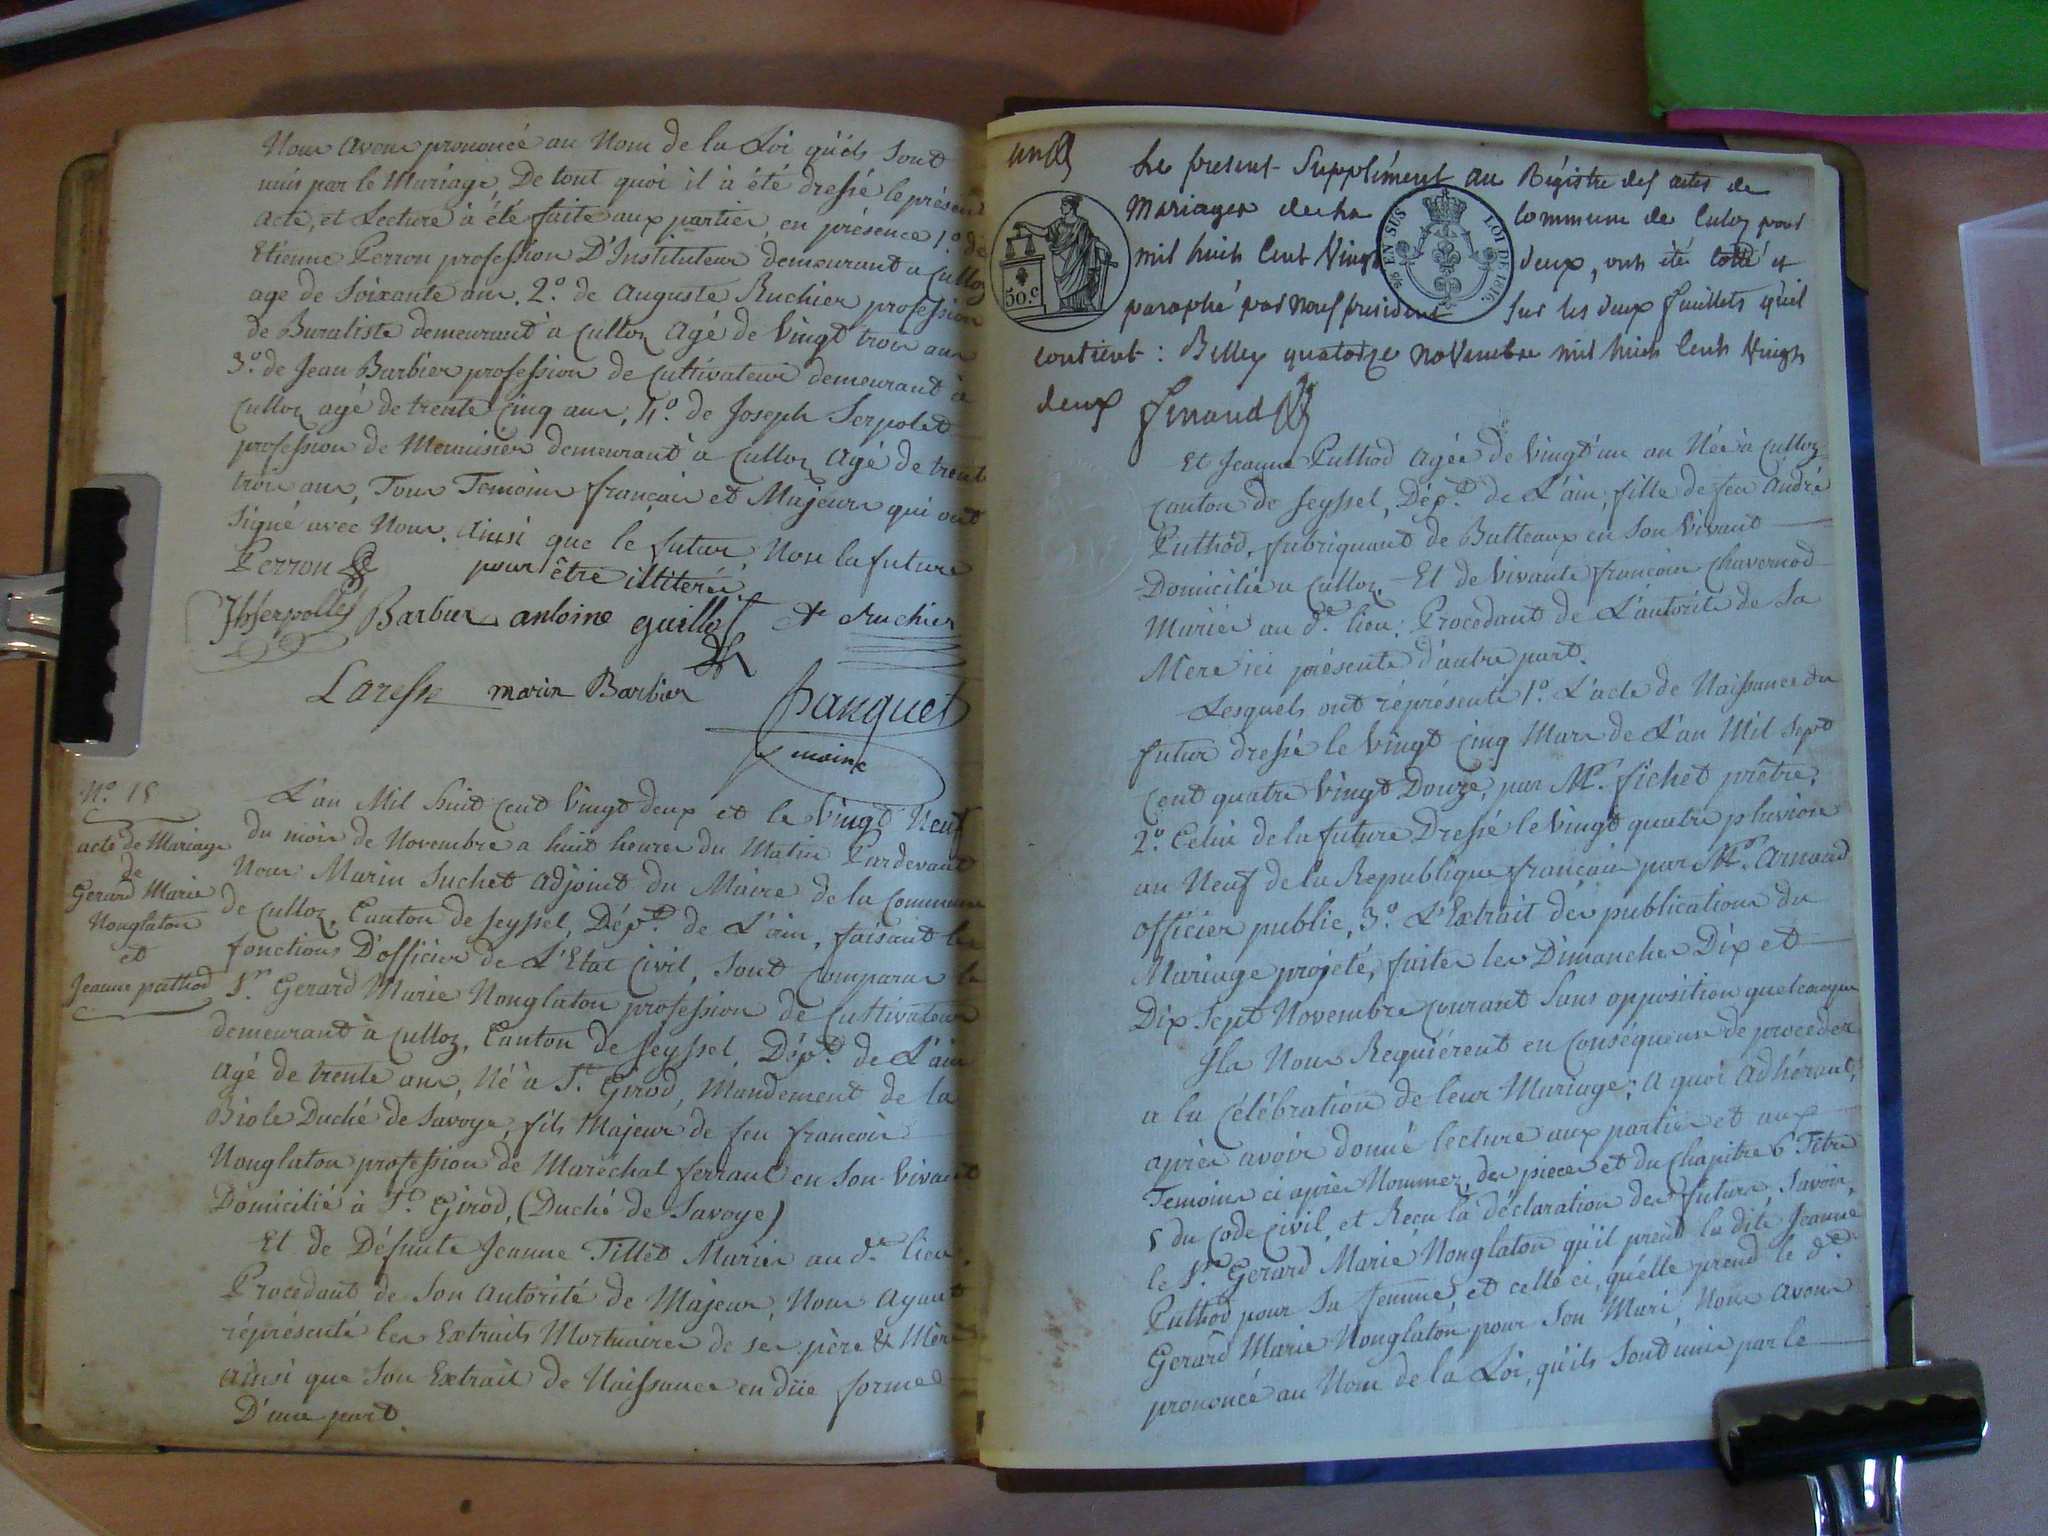 Nous avons prononcé au Nom de la Loi qu'ils sont
unis par le Mariage, De tout quoi il à été dressé le présent
acte, et Lecture à été faite aux parties, en présence 1.º de
Etienne Perron profession D'Instituteur demeurant a Culloz
age de Soixante ans. 2.º de Auguste Ruchier profession
de Buraliste demeurant à Culloz Agé de Vingt trois ans
3.º de Jean Barbier profession de Cultivateur demeurant à
Culloz agé de trente Cinq ans, 4.º de Joseph Serpolet
profession de Menuisier demeurant à Culloz Agé de trente
trois ans, Tous Temoins français et Majeurs qui ont
Signé avec Nous. Ainsi que le futur, Non la future
pour être illiterée.
Perron
JhSerpollet Barbier antoine guillet Ate Ruchier
Laresse marin Barbier Banquet
moine
N.º 15
acte de Mariage
de
Gerard Marie
Nonglaton
et
Jeanne puthod
L'an Mil huit Cent Vingt deux et le Vingt Neuf
du mois de Novembre a huit heures du Matin Pardevant
Nous Marin Suchet Adjoint du Maire de la Commune
de Culloz, Canton de Seyssel, Dép.t de L'ain, faisant les
fonctions D'officier de L'Etat Civil, Sont Comparus le
S.r Gerard Marie Nonglaton profession de Cultivateur
demeurant à Culloz, Canton de Seyssel, Dép.t de L'ain
Agé de trente ans, Né à S.t Girod, Mandement de la
Biole Duché de Savoye, fils Majeur de feu françois
Nonglaton profession de Maréchal ferrant en Son Vivant
Domicilié à S.t Girod, (Duché de Savoye)
Et de Défunte Jeanne Tillet Mariés au d.t lieu.
Procedant de Son Autorité de Majeur, Nous Ayant
réprésenté les Extraits Mortuaires de sés père & Mère
Ainsi que Son Extrait de Naissance en düe forme
D'une part.
un
Le present Supplément au Régistre des actes de
Mariages de la Commune de Culoz pour
mil huit Cent Vingt deux, ont été cotté et
paraphé par nous president sur les deux feuillets qu'il
contient : Belley quatorze novembre mil huit Cent Vingt
deux
50.c
% EN SUS LOI DE 1816.
Et Jeanne Puthod Agée de Vingt un an Née à Culloz
Canton de Seyssel, Dép.t de L'ain, fille de feu André
Puthod, fabriquant de Batteaux en Son Vivant
Domicilié a Culloz, Et de Vivante françoise Chavernod
Mariés au d.t lieu; Procedant de L'autorité de Sa
Mere ici présente d'autre part.
Lesquels ont réprésenté 1.º L'acte de Naissance du
futur dressé le Vingt Cinq Mars de L'an Mil Sept
Cent quatre Vingt Douze, par M.r fichet prêtre,
2.º Celui de la future Dressé le Vingt quatre pluviose
an Neuf de la Republique française par M.r Arnaud
officier public, 3.º L'Extrait des publications du
Mariage projeté, faites les Dimanches Dix et
Dix Sept Novembre Courant Sans opposition quelconque
Ils Nous Requiérent en Conséquense de proceder
a la Célébration de leur Mariage; A quoi Adhérant,
après avoir donné lecture aux parties et aux
Temoins ci après Nommez, des pieces et du Chapitre 6 Titre
5 du Code Civil, et Reçu la déclaration des futurs, Savoir,
le S.r Gerard Marie Nonglaton qu'il prend la dite Jeanne
Puthod pour Sa femme et celle ci, qu'elle prend le d.t
Gerard Marie Nonglaton pour Son Mari Nous avons
prononcé au Nom de la Loi, qu'ils Sont unis par le